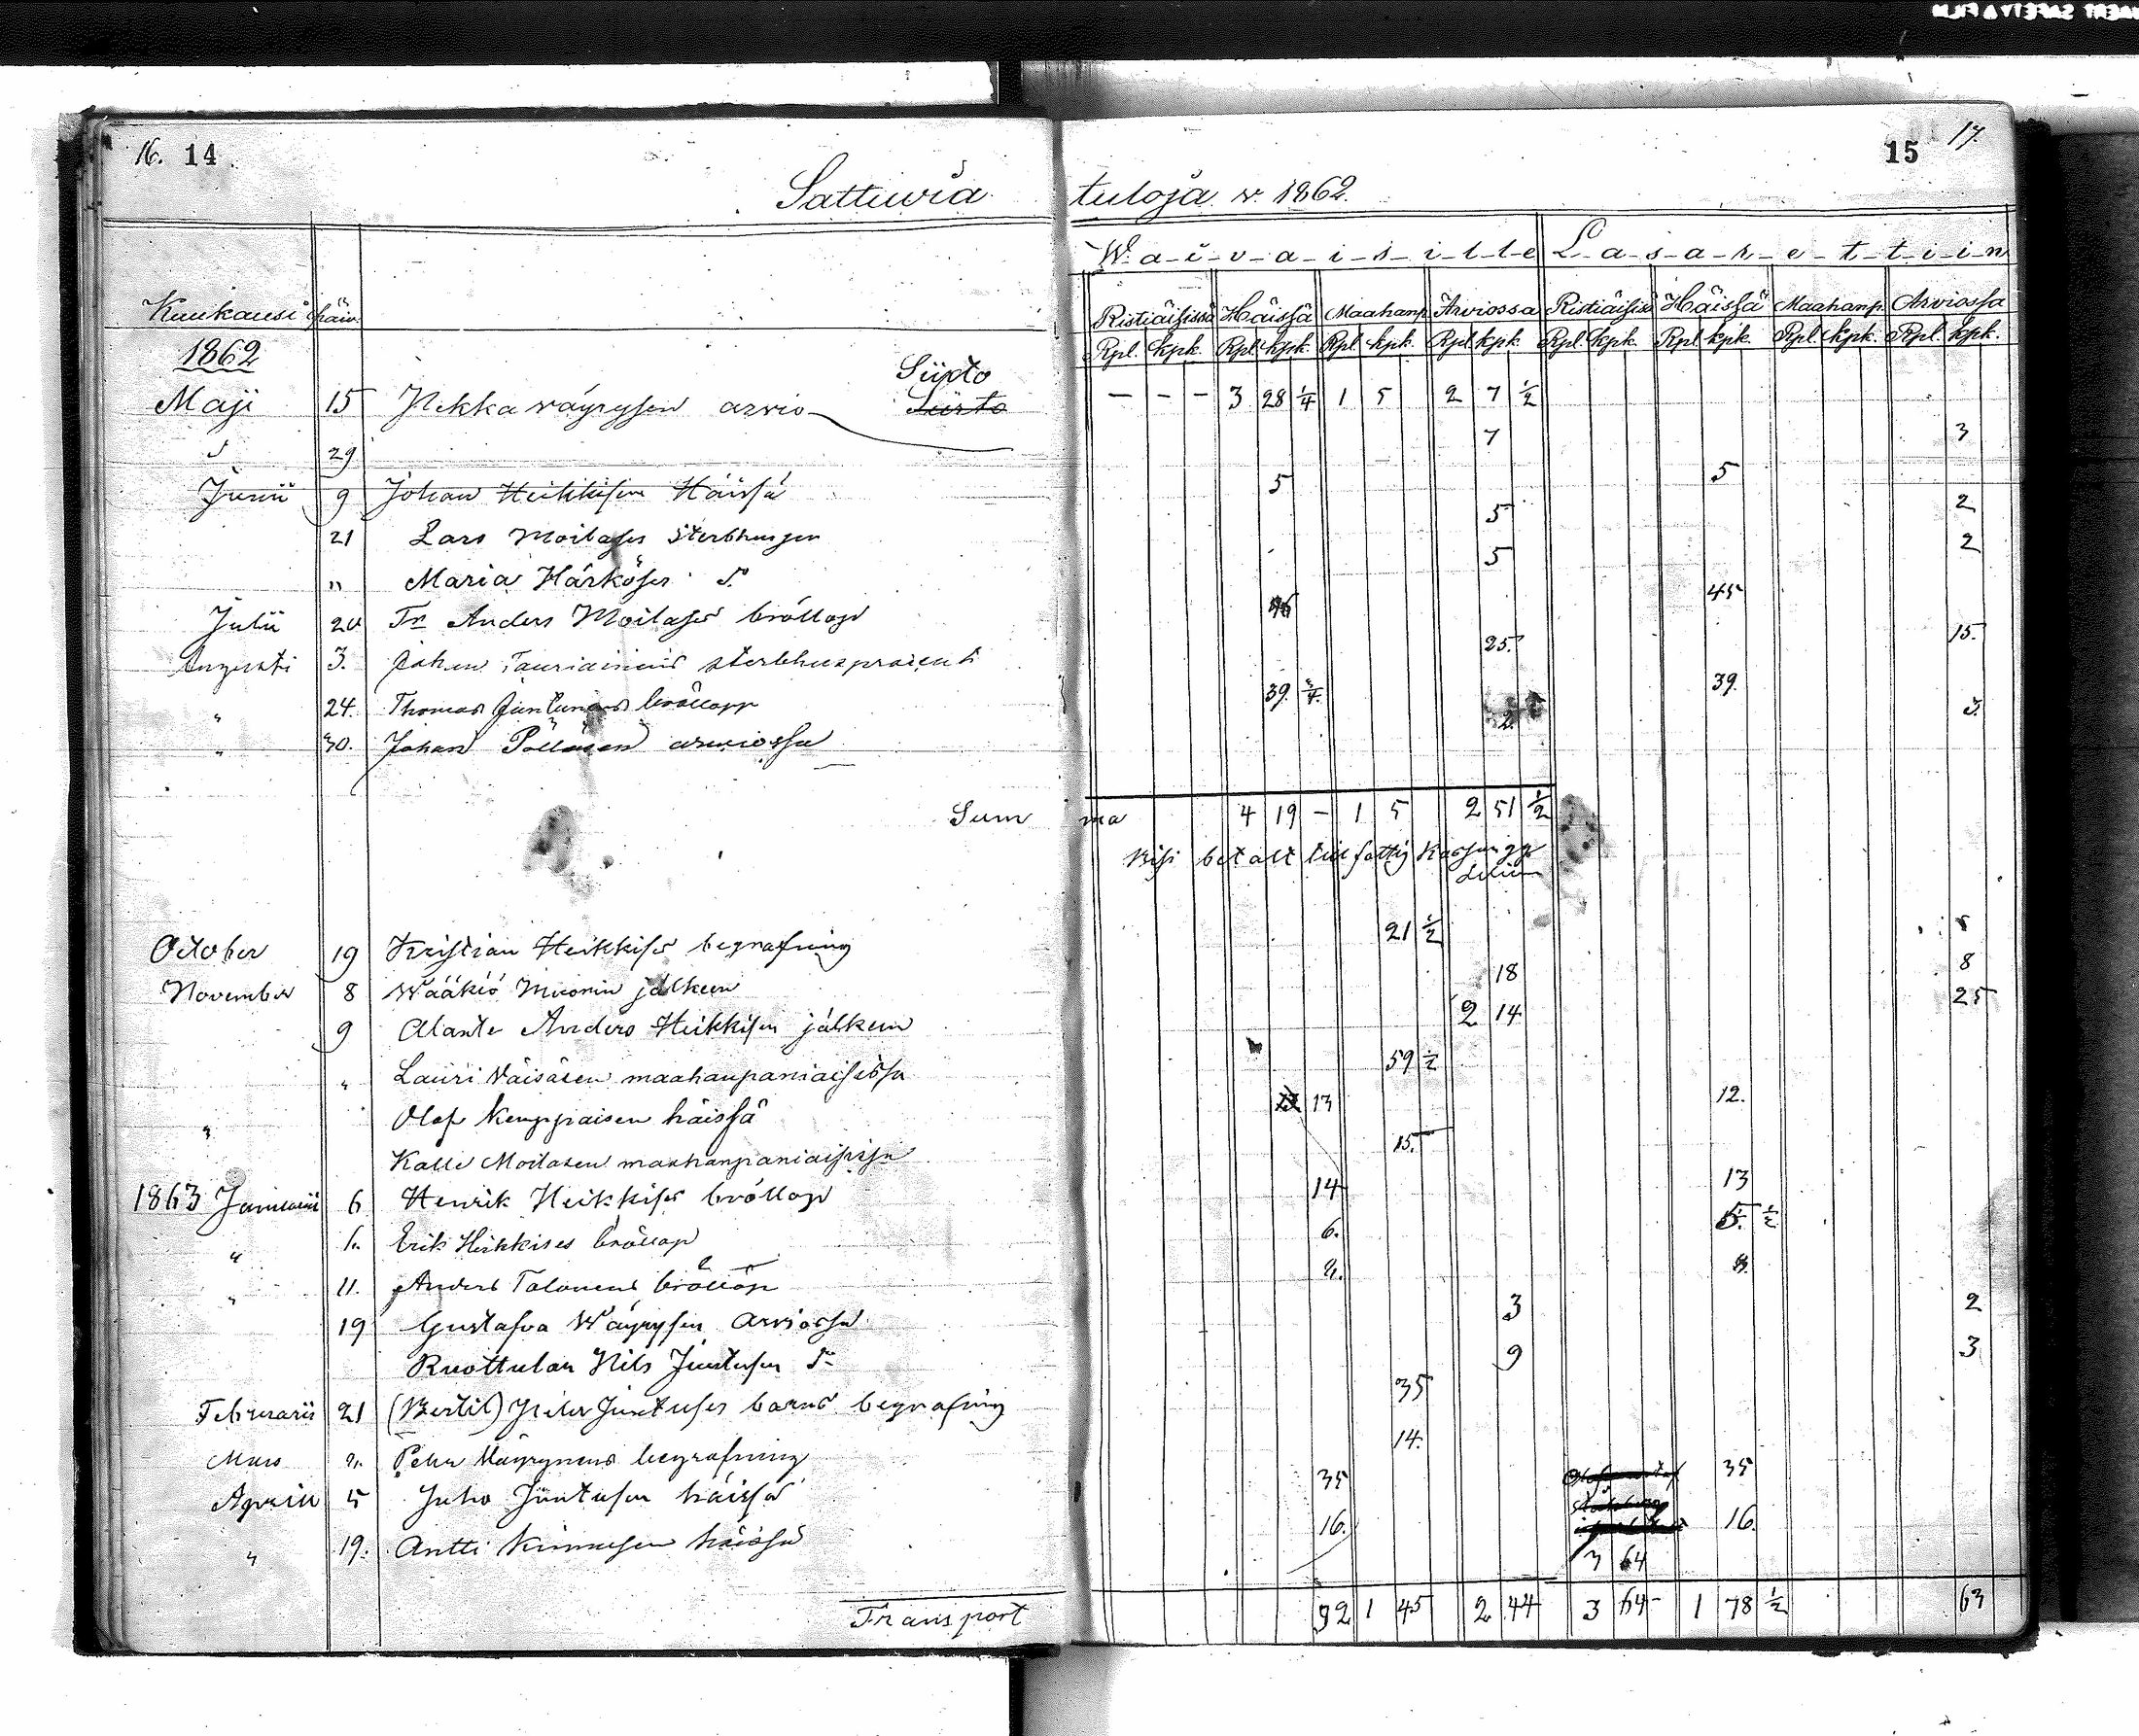 16. 14
15 17.
Sattuvia tuloja v. 1862.
W-a-i-v-a-i-s-i-l-l-e L-a-s-a-r-e-t-t-i-i-n
Kuukausi Päiv. Ristiäisissä Häissä Maahanp. Arviossa Ristiäisissä Häissä Maahanp. Arviossa
1862 Rpl. kpk. Rpl. kpk. Rpl. kpk. Rpl. kpk. Rpl. kpk. Rpl. kpk. Rpl. kpk. Rpl. kpk.
Siirto
Maji 15 Pekka väyrysen arvio Siirto — — — 3 28 1/4 1 5 2 7 1/2
29 7 3
Junii 9 Johan Heikkisen Häissä 5 5
21 Lars Moilases sterbhus 5 2
" Maria Härköses d:o 5 2
Julii 20 Anders Moilases bröllop 46 45
Augusti 3. Johan Tauriainens sterbhus 25. 15.
" 24. Thomas Juntunens bröllopp 39. 3/4 39.
" 30. Johan Pölläsen arviossa 2. 3.
Summa 4 19 — 1 5 2 51 1/2
betalt till fattig
October 19 Kristian Heikkises begrafning 21 1/2
November 8 Wääkiö jälkeen 18 8
9 Alanti Anders Heikkisen jälkeen 2 14 25
" Lauri Väisäsen maahanpaniaisissa 59 1/2
" Olof Kemppaisen häissä 13 12.
Kalle Moilasen maahanpaniaisissa 15.
1863 Januarii 6 Henrik Heikkises bröllop 14 13
" 6. Erik Heikkises bröllop 6. 5. 1/2
" 11. Anders Talonens bröllop
19 Gustafva Wäyrysen Arviossa 3 2
Ruottulan Nils Juntusen d:o 9 3
Februarii 21 (Bertil) Juntuses barns begrafning 35
Mars Peter Väyrynens begrafning 14.
Aprill 5 Juho Juntusen häissä 35 35
" 19. Antti Kinnusen häissä 16. 16.
3 64
Transport 92 1 45 2 44 3 64 1 78 1/2 63